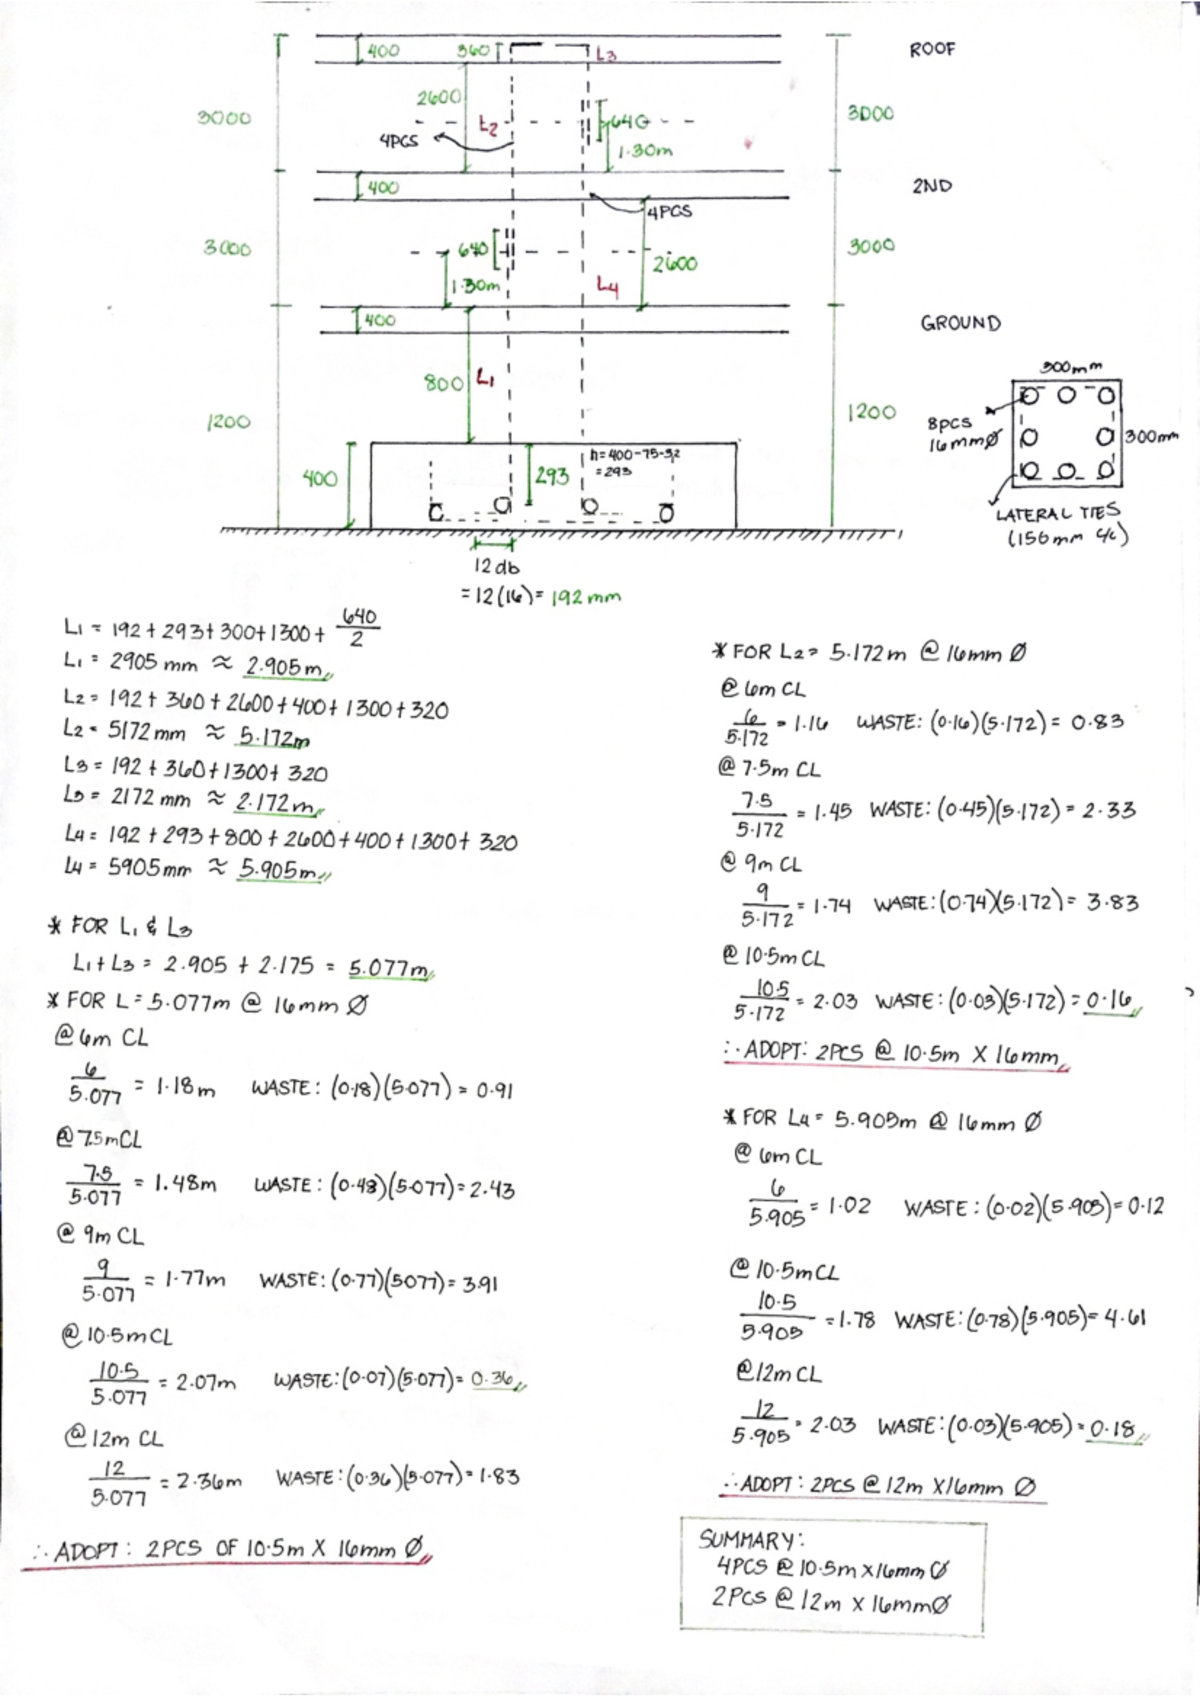 400
360
L3
ROOF
2600
3000
L2
640
3000
4PCS
1.30m
400
2ND
4PCS
3000
640
2600
3000
1.30m
L4
400
GROUND
800
L1
300mm
1200
1200
8PCS
16mmØ
300mm
h=400-75-32
=293
400
293
LATERAL TIES
(156mm c/c)
12db
=12(16)= 192mm
L1 = 192+293+300+1300+ 640/2
L1 = 2905 mm ≈ 2.905m
L2 = 192+ 360+2600+400+1300+320
L2 = 5172mm ≈ 5.172m
L3 = 192+360+1300+320
L3 = 2172 mm ≈ 2.172m
L4 = 192+293+800+2600+400+1300+ 320
L4 = 5905mm ≈ 5.905m
* FOR L1 & L3
L1+L3 = 2.905 + 2.175 = 5.077m
* FOR L=5.077m @ 16mm Ø
@ 6m CL
6/5.077 = 1.18m WASTE: (0.18)(5.077) = 0.91
@ 7.5m CL
7.5/5.077 = 1.48m WASTE: (0.48)(5.077)=2.43
@ 9m CL
9/5.077 = 1.77m WASTE: (0.77)(5077)= 3.91
@ 10.5m CL
10.5/5.077 = 2.07m WASTE:(0.07)(5.077)= 0.36
@ 12m CL
12/5.077 = 2.36m WASTE:(0.36)(5.077)=1.83
∴ ADOPT: 2PCS OF 10.5m X 16mm Ø
* FOR L2= 5.172m @ 16mm Ø
@ 6m CL
6/5.172 = 1.16 WASTE: (0.16)(5.172)= 0.83
@ 7.5m CL
7.5/5.172 = 1.45 WASTE: (0.45)(5.172) = 2.33
@ 9m CL
9/5.172 = 1.74 WASTE:(0.74)(5.172)= 3.83
@ 10.5m CL
10.5/5.172 = 2.03 WASTE:(0.03)(5.172)= 0.16
∴ ADOPT: 2PCS @ 10.5m X 16mm
* FOR L4 = 5.905m @ 16mm Ø
@ 6m CL
6/5.905 = 1.02 WASTE: (0.02)(5.905)=0.12
@ 10.5m CL
10.5/5.905 =1.78 WASTE:(0.78)(5.905)= 4.61
@12m CL
12/5.905 = 2.03 WASTE:(0.03)(5.905)= 0.18
∴ ADOPT: 2PCS @ 12m X16mm Ø
SUMMARY:
4PCS @ 10.5m x16mm Ø
2PCS @ 12m X 16mmØ